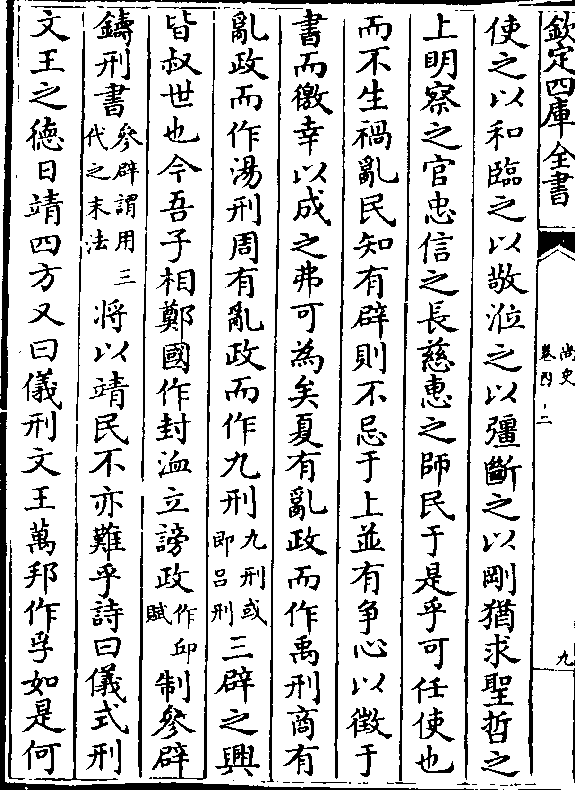 欽定四庫全書
尚史
卷四十二
九
使之以和臨之以敬涖之以彊斷之以剛猶求聖哲之
上明察之官忠信之長慈惠之師民于是乎可任使也
而不生禍亂民知有辟則不忌于上並有爭心以徵于
書而徼幸以成之弗可為矣夏有亂政而作禹刑商有
亂政而作湯刑周有亂政而作九刑九刑或即呂刑三辟之興
皆叔世也今吾子相鄭國作封洫立謗政作邱賦制參辟
鑄刑書參辟謂用三代之末法將以靖民不亦難乎詩曰儀式刑
文王之德日靖四方又曰儀刑文王萬邦作孚如是何